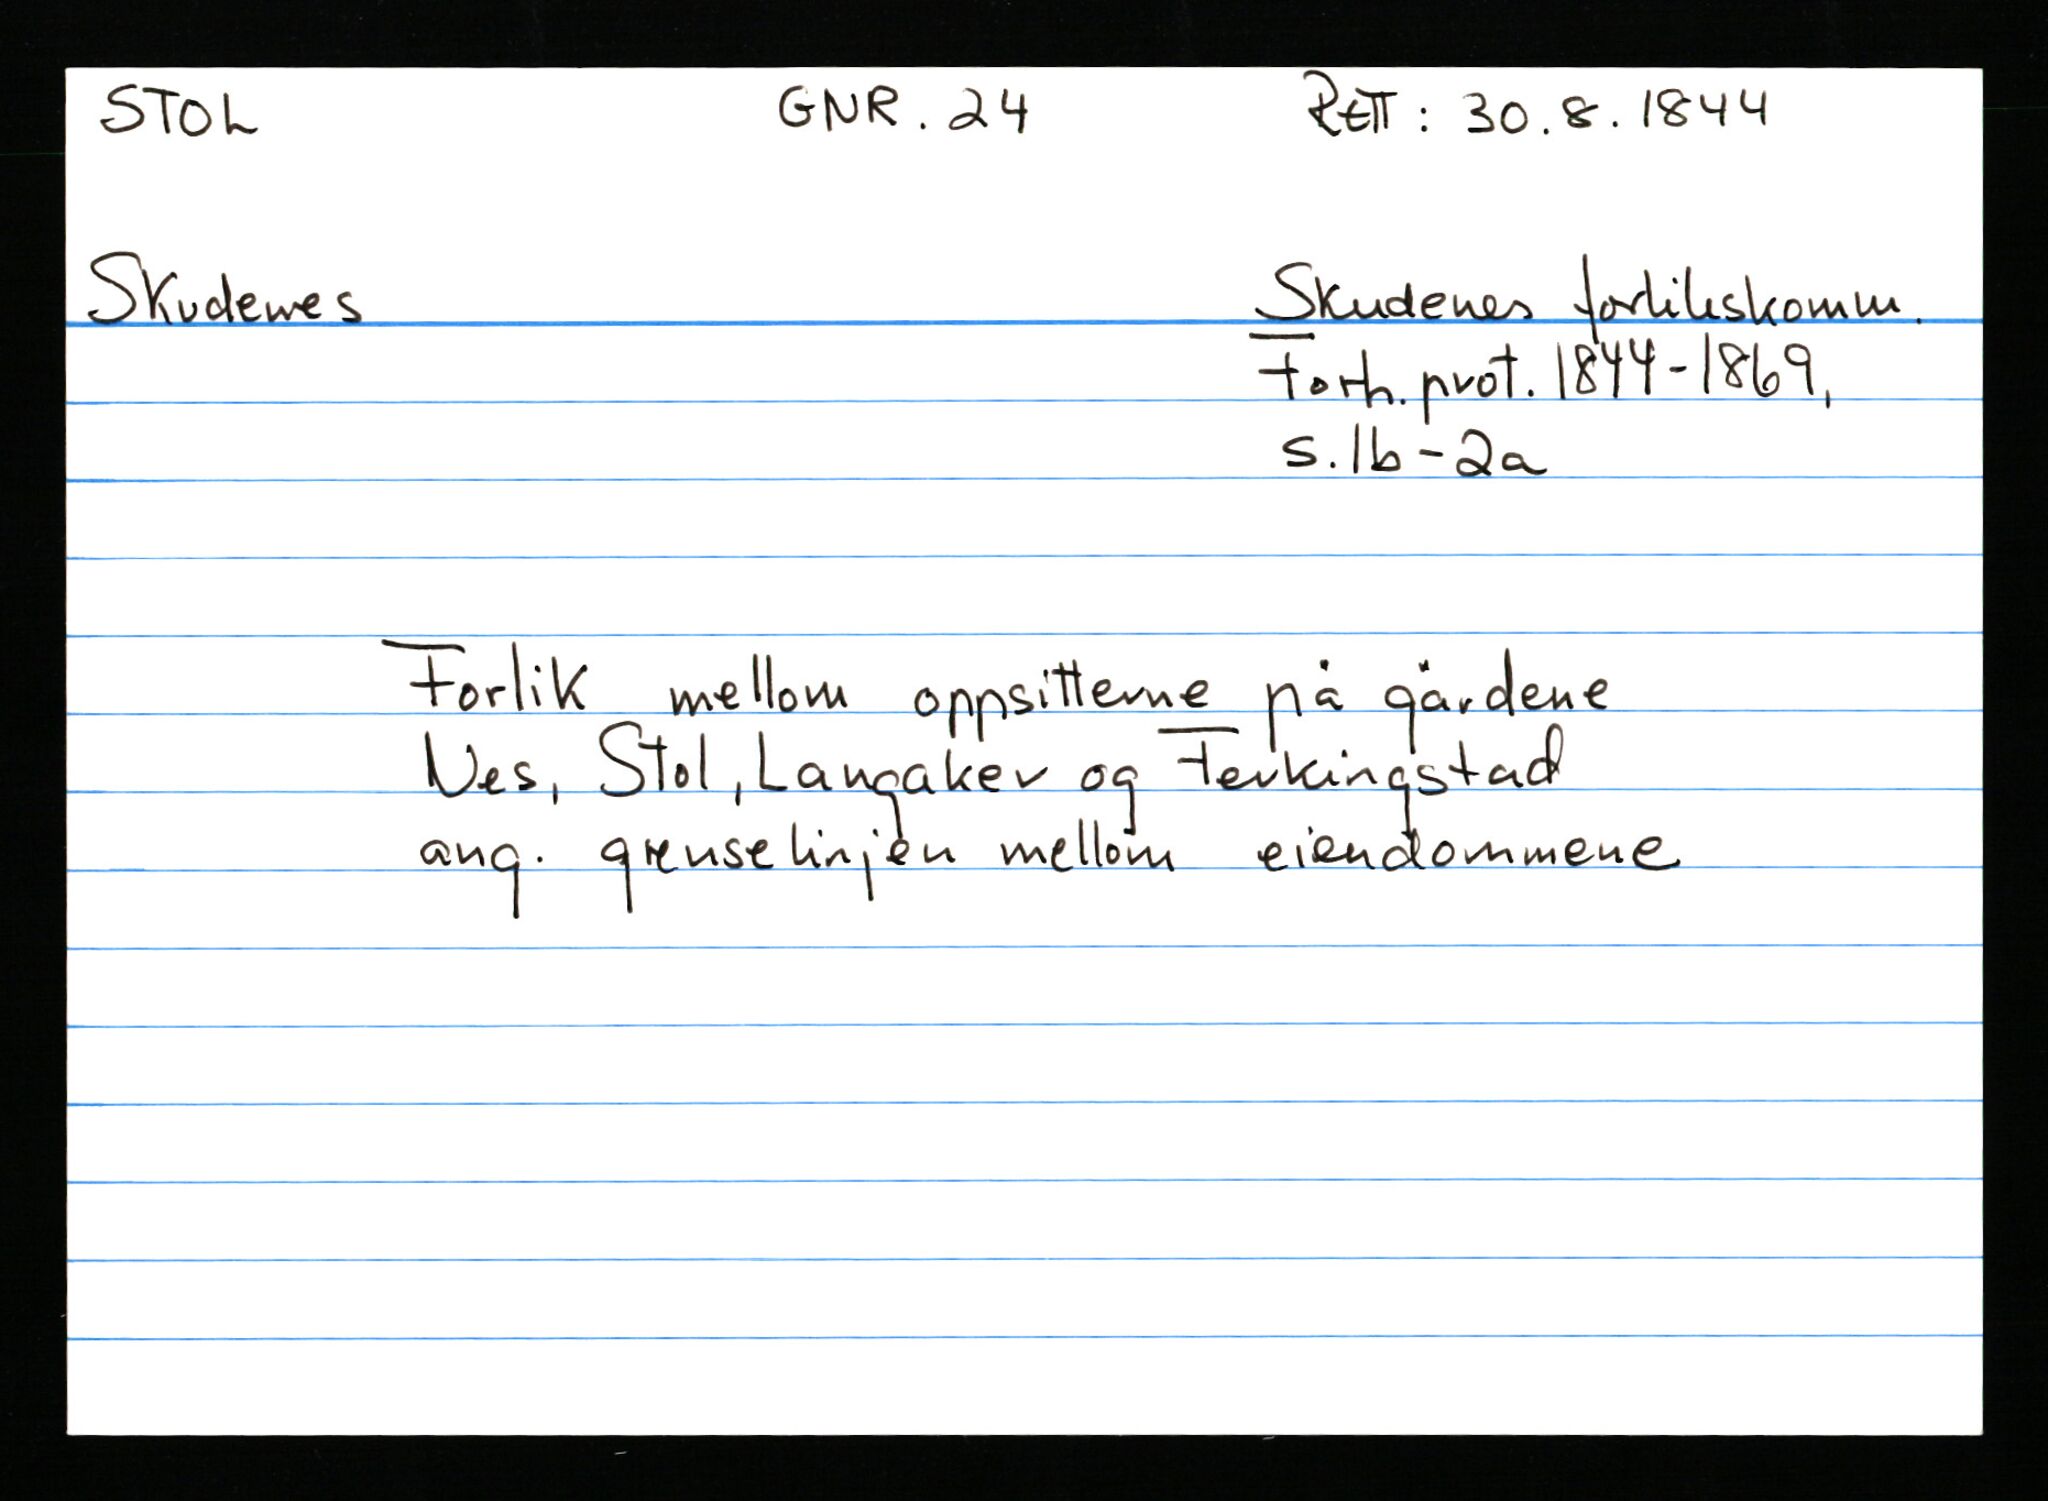 STOL GNR. 24 RETT: 30.8.1844
Skudenes Skudenes forlikskomm.
Forh. prot. 1844-1869,
s. 1b - 2a
Forlik mellom oppsitterne på gårdene
Nes, Stol, Langaker og Ferkingstad
ang. grenselinjen mellom eiendommene